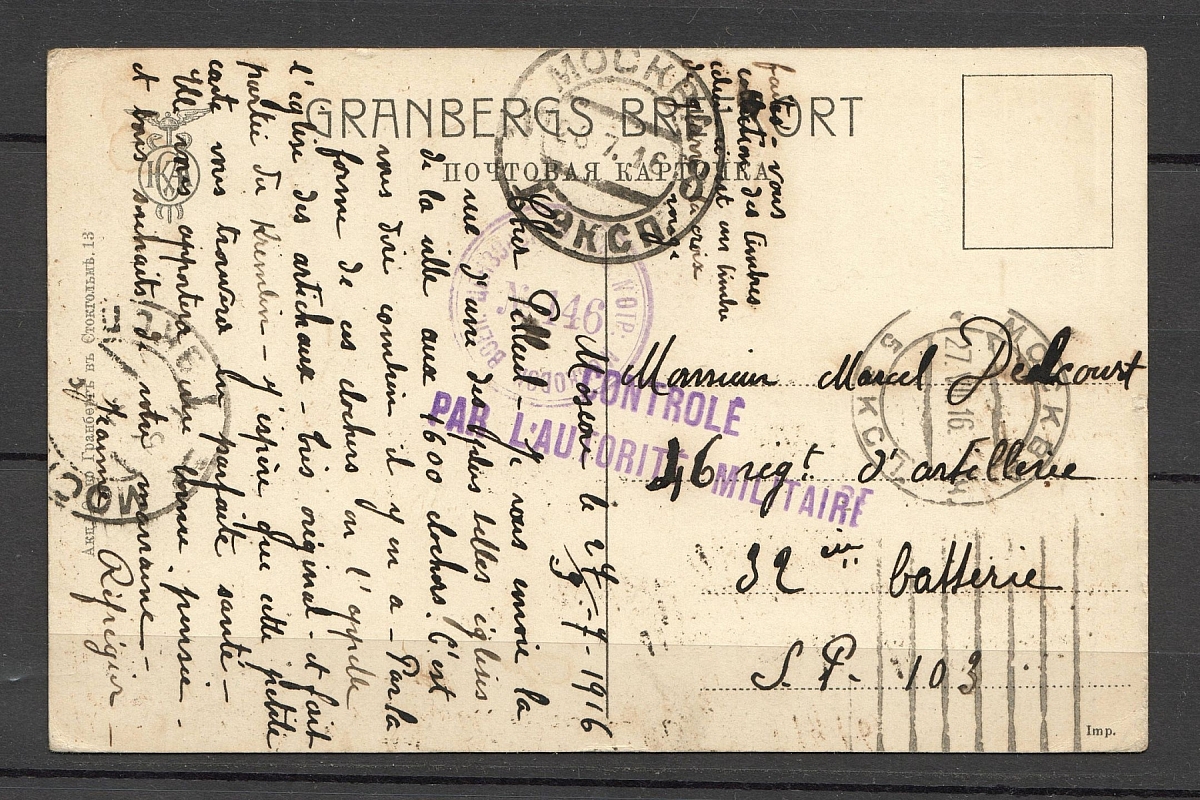 GRANBERGS BREFKORT
ПОЧТОВАЯ КАРТОЧКА
МОСКВА
28.7.16
8
ЭКСП.
faites-vous
collection des timbres
celui-ci est un timbre
de la croix
Moscou le 27-7-1916
9/8
Cher Filleul - Je vous envoie la
vue d'une des plus belles églises
de la ville aux 1600 clochers. C'est
vous dire combien il y en a - Par la
forme de ces clochers on l'appelle
l'église des artichaux - très original - et fait
partie du Kremlin - J'espère que cette petite
carte vous trouvera en parfaite santé -
Elle vous apportera une bonne pensée -
et bons souhaits de votre marraine -
Jeanne
Акц. Общ. Гранбергъ въ Стокгольмѣ. 13
№ 146
CONTROLÉ
PAR L'AUTORITÉ MILITAIRE
МОСКВА
27 16
5 ЭКСП.
Monsieur Marcel Delcourt
46 regt. d'artillerie
32 em batterie
S. P. 103
МОС
Imp.